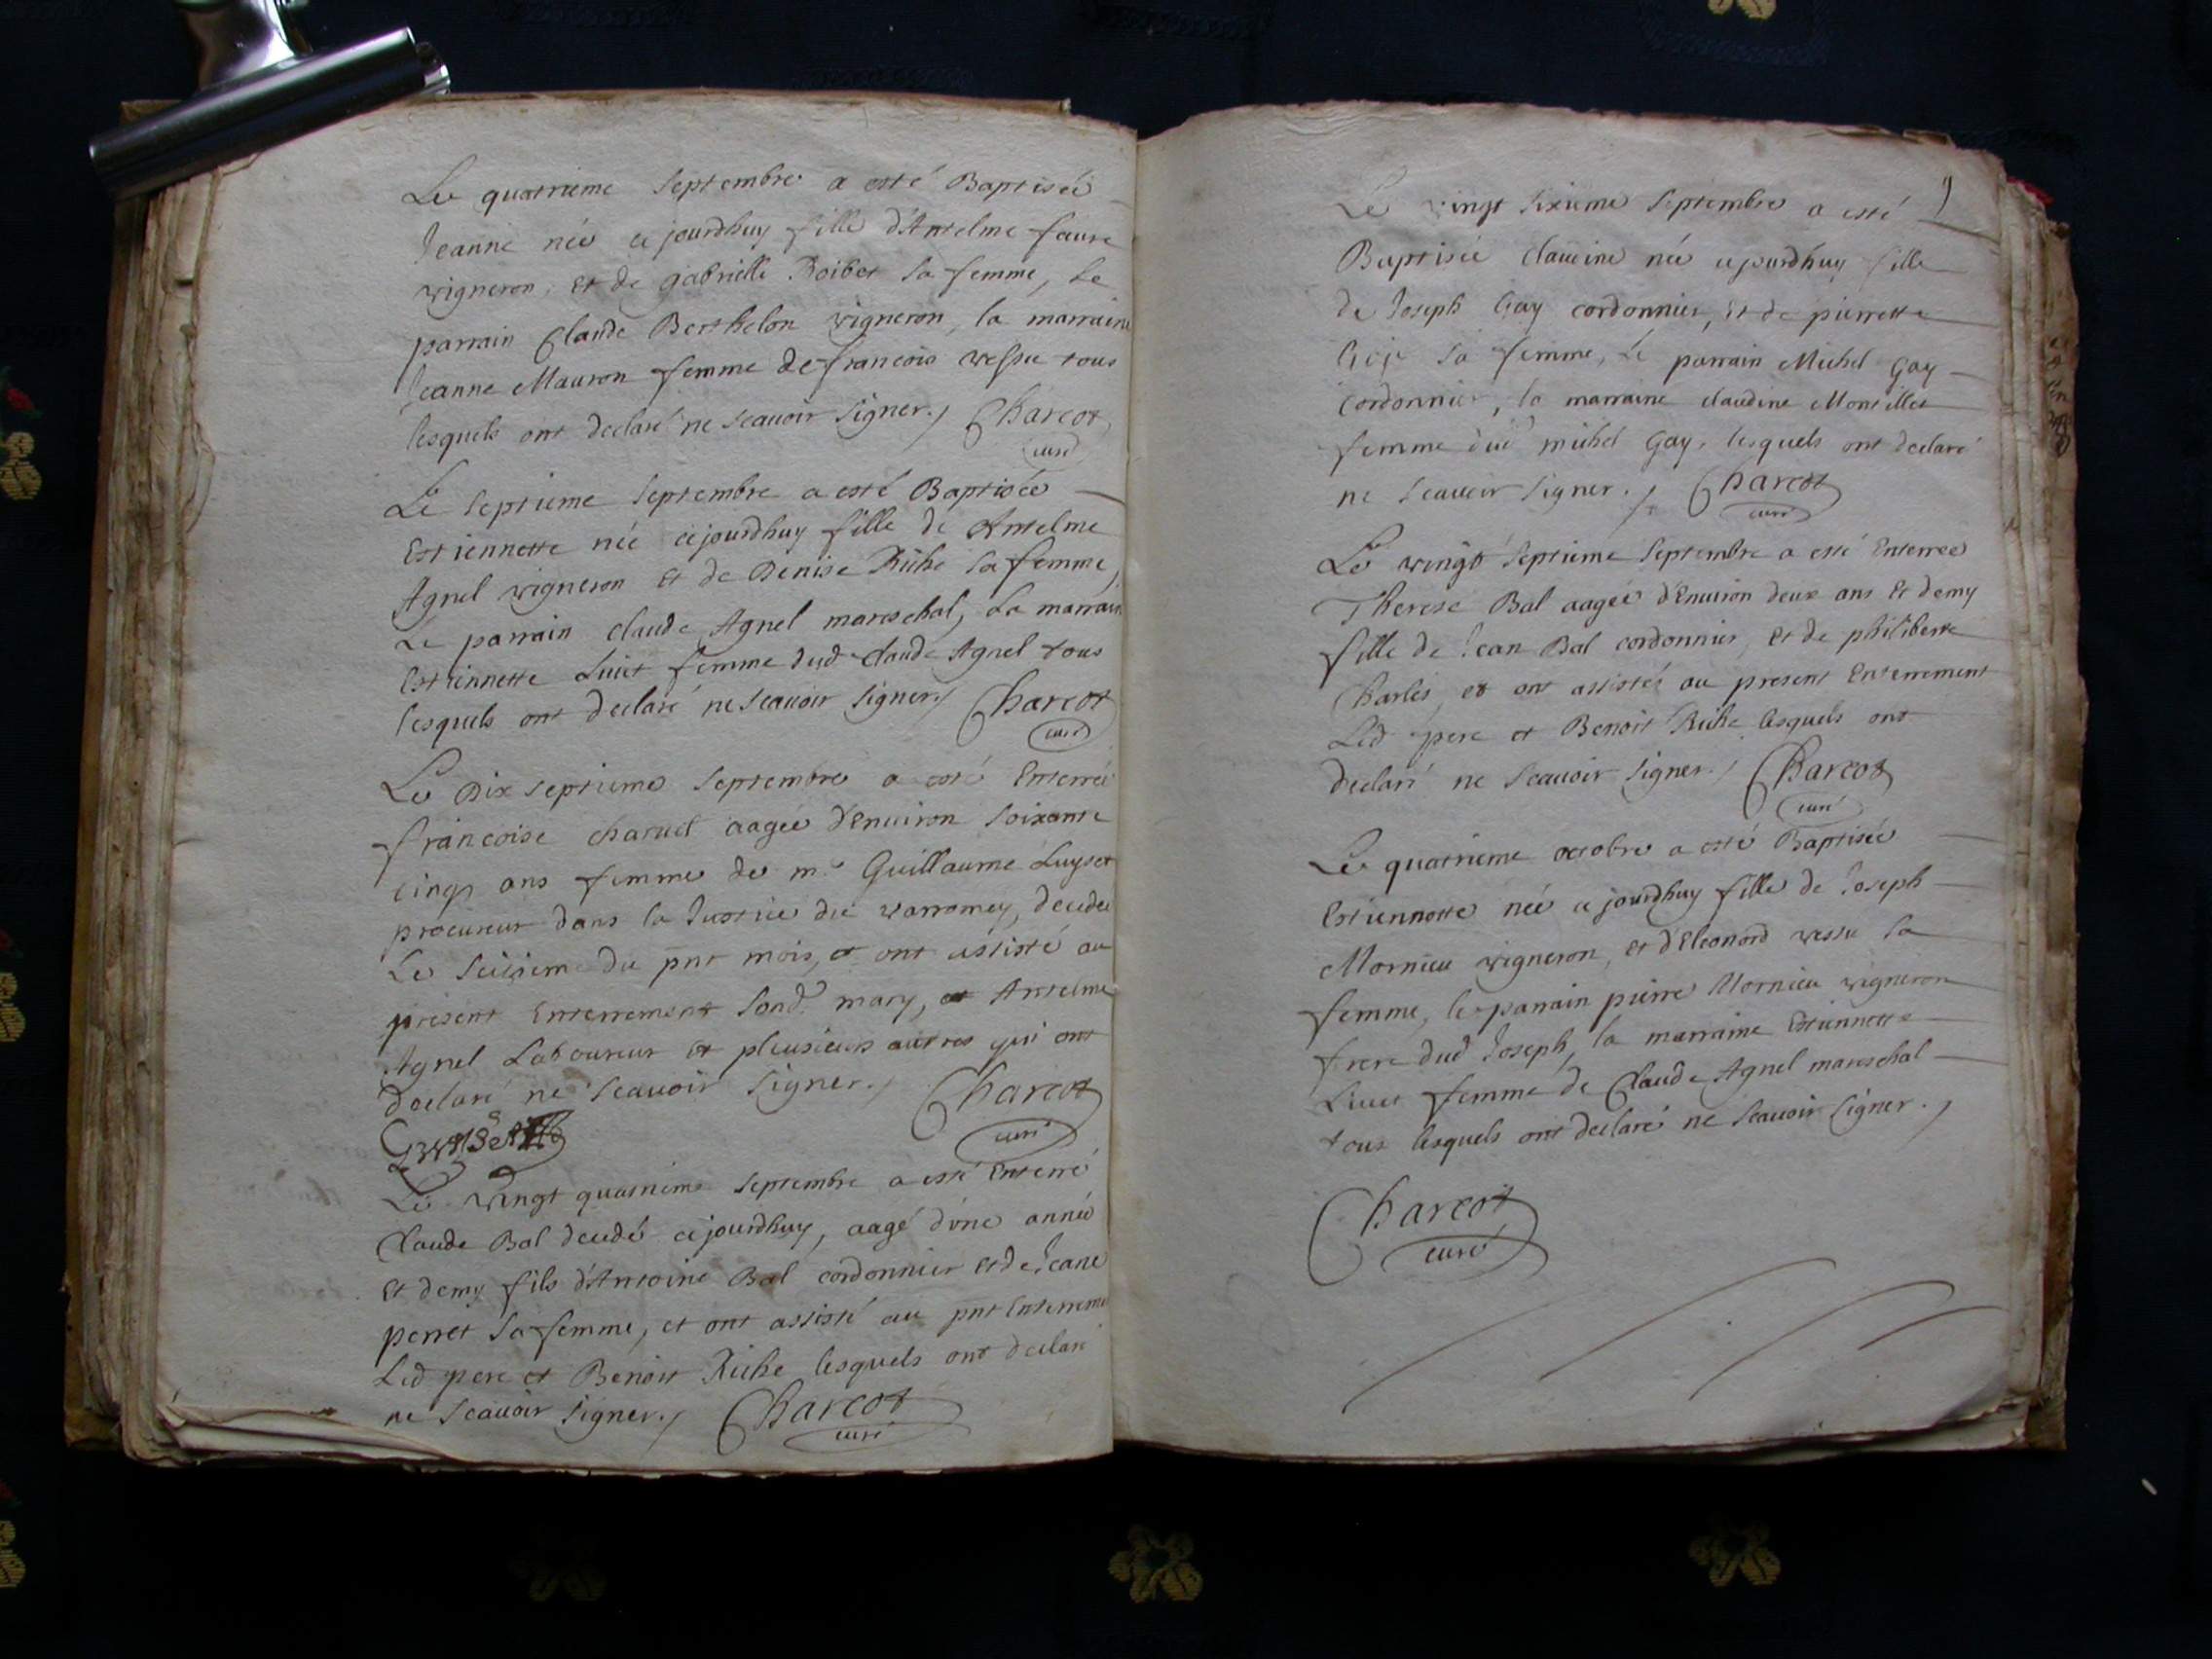 Le quatrieme Septembre a esté Baptisée
Jeanne née cejourdhuy fille d'Antelme faure
vigneron, et de gabrielle Boibet sa femme, le
parrain Claude Berthelon vigneron, la marraine
Jeanne Mauron femme de francois vessu tous
lesquels ont declaré ne scauoir signer./ Charcot
curé
Le septieme septembre a esté Baptisée
Estiennette née cejourdhuy fille de Antelme
Agnel vigneron et de Denise Riche sa femme,
Le parrain claude Agnel mareschal, La marraine
Estiennette Liuet femme dud claude Agnel tous
lesquels ont declaré ne scauoir signer./ Charcot
curé
Le Dix septieme septembre a esté Enterrée
francoise charuet aagée d'Enuiron soixante
cinq ans femme de me Guillaume Luyset
procureur dans la Justice du varromey, decedée
Le seizieme du pnt mois, et ont assisté au
present Enterrement sond. mary, et Antelme
Agnel Laboureur et plusieurs autres qui ont
declaré ne scauoir signer./ Charcot
curé
Le vingt quatrieme septembre a esté Enterré
Claude Bal decedé cejourdhuy, aagé d'une année
Et demy fils d'Antoine Bal cordonnier et de Jeane
perret sa femme, et ont assisté au pnt Enterreme
Led pere et Benoit Riche lesquels ont declaré
ne scauoir signer./ Charcot
curé
Le vingt sixieme septembre a esté
Baptisée claudine née cejourdhuy fille
de Joseph Gay cordonnier, et de pierrette
sa femme, Le parrain Michel Gay
cordonnier, la marraine claudine Montillet
femme dud michel Gay, lesquels ont declaré
ne scauoir signer./ Charcot
curé
Le vingt septieme septembre a esté Enterrée
Therese Bal aagée d'Enuiron deux ans et demy
fille de Jean Bal cordonnier, et de philiberte
Charles, et ont assistés au present Enterrement
Led pere et Benoit Riche lesquels ont
declaré ne scauoir signer./ Charcot
curé
Le quatrieme octobre a esté Baptisée
Estiennette née cejourdhuy fille de Joseph
Mornieu vigneron, et d'Eleonord vessu sa
femme, le parrain pierre Mornieu vigneron
frere dud Joseph, la marraine Estiennette
Liuet femme de Claude Agnel mareschal
tous lesquels ont declaré ne scauoir signer./
Charcot
curé